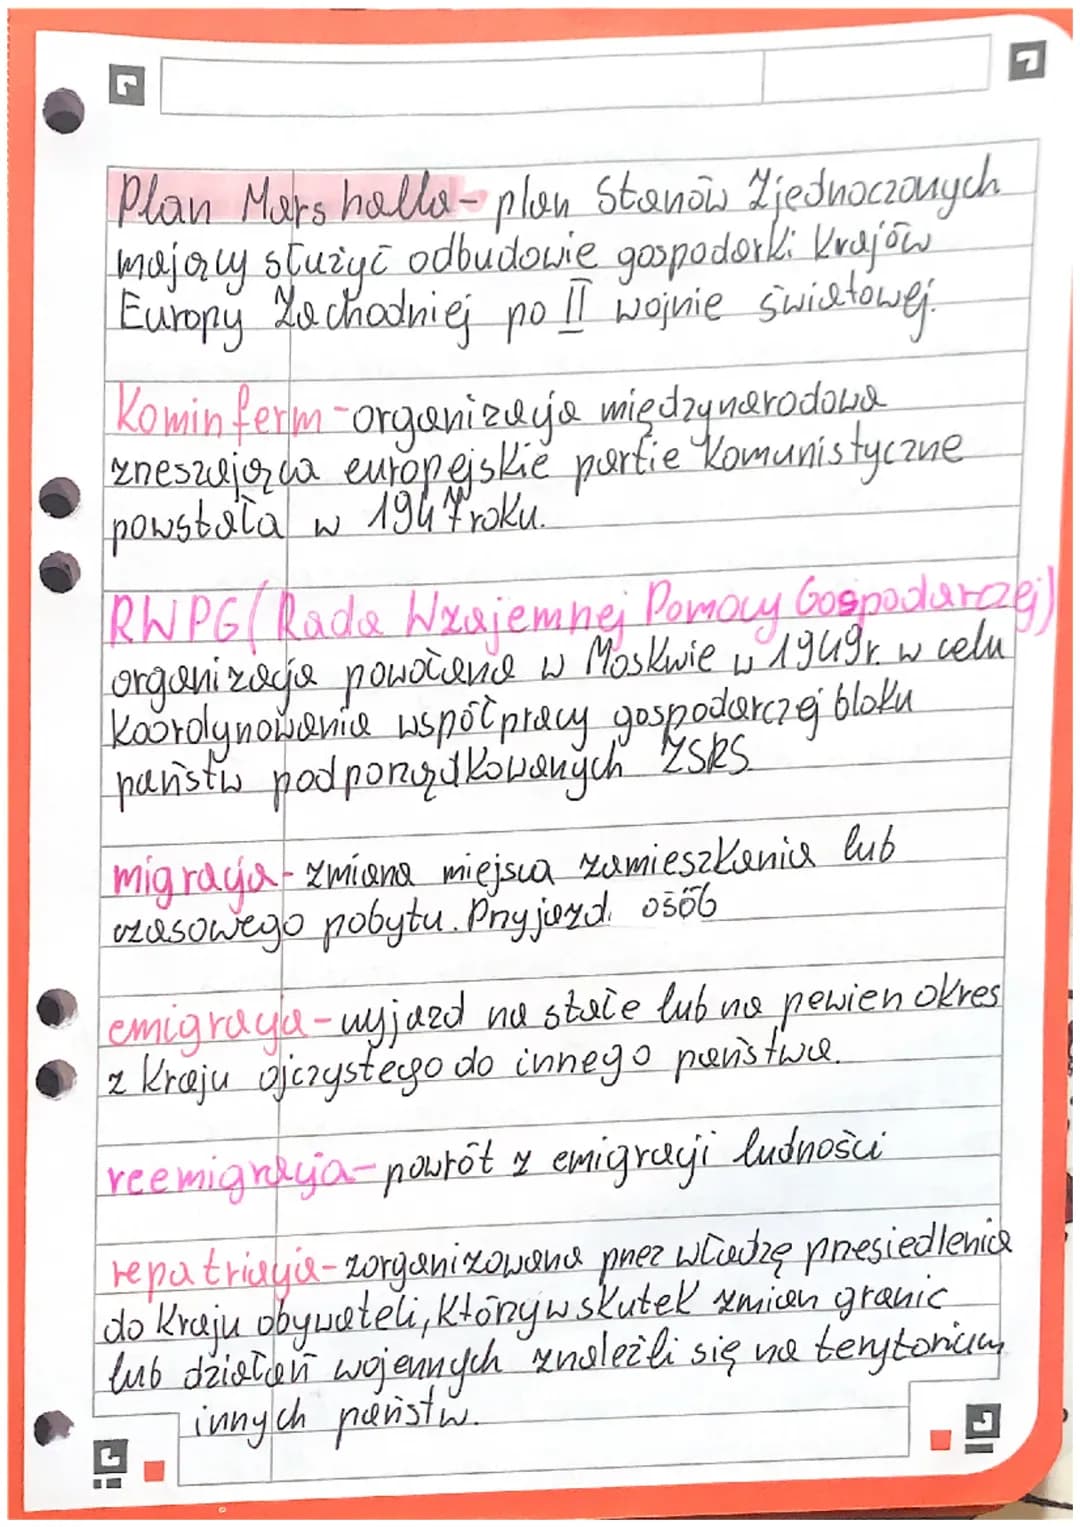 Plan Marshalla - plan Stanów Zjednoczonych
mający służyć odbudowie gospodarki krajów
Europy Zachodniej po II wojnie światowej.
Kominferm - organizacja międzynarodowa
zrzeszająca europejskie partie komunistyczne
powstała w 1947 roku.
RWPG (Rada Wzajemnej Pomocy Gospodarczej)
organizacja powołana w Moskwie w 1949r. w celu
koordynowania współpracy gospodarczej bloku
państw podporządkowanych ZSRS
migracja - zmiana miejsca zamieszkania lub
czasowego pobytu. Przyjazd osób
emigracja - wyjazd na stałe lub na pewien okres
z kraju ojczystego do innego państwa.
reemigracja - powrót z emigracji ludności
repatriacja - zorganizowana przez władzę przesiedlenia
do kraju obywateli, którzy wskutek zmian granic
lub działań wojennych znaleźli się na terytorium
innych państw.